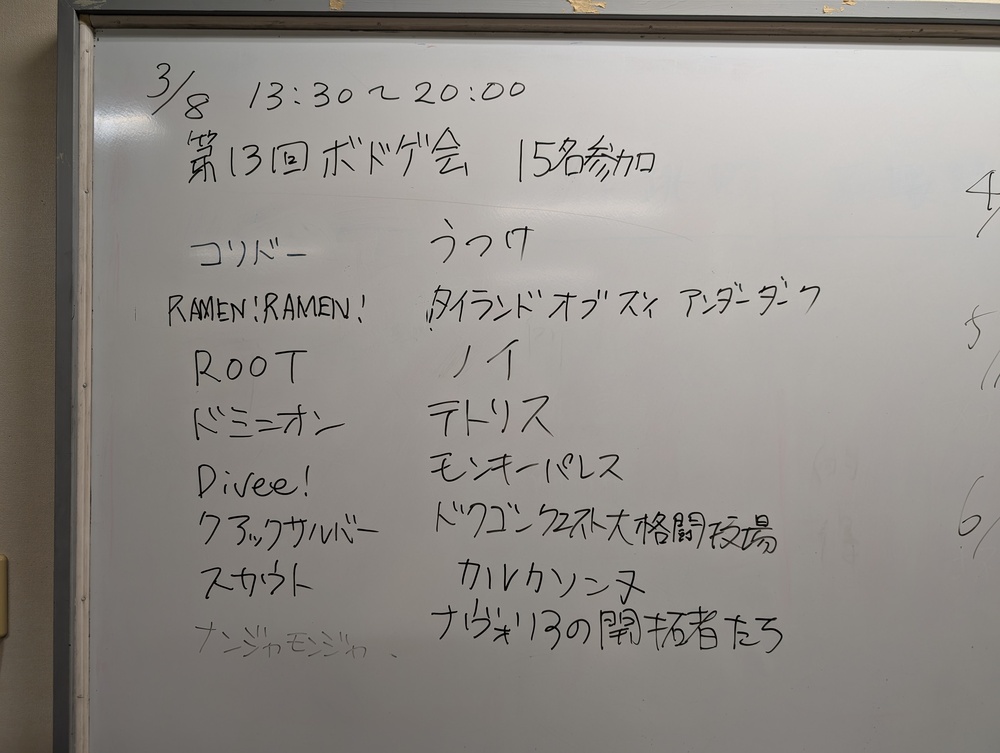 3/8 13:30~20:00
第13回ボドゲ会 15名参加
コリドー うつけ
RAMEN!RAMEN! タイランドオブズイ アンダーダーク
ROOT ノイ
ドミニオン テトリス
Divee! モンキーパレス
クアックサルバー ドラゴンクエスト大格闘技場
スカウト カルカソンヌ
ナンジャモンジャ ナヴォリ3の開拓者たち
4/
5/1
6/